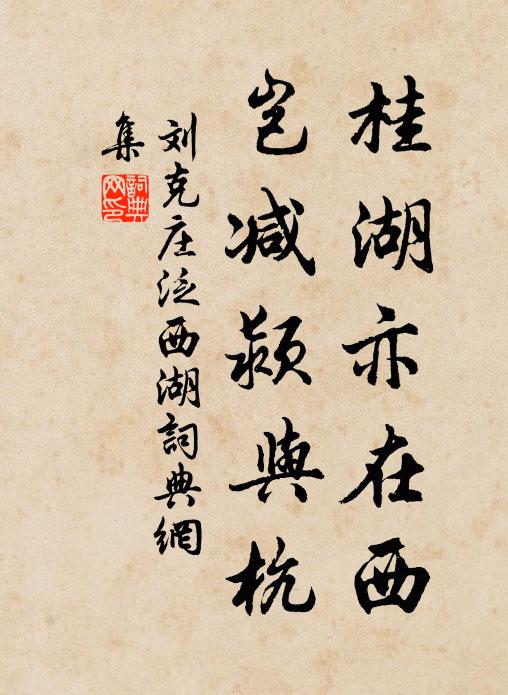 桂湖亦在西
岂减颍与杭
刘克庄泛西湖詞典網
集
詞典网印